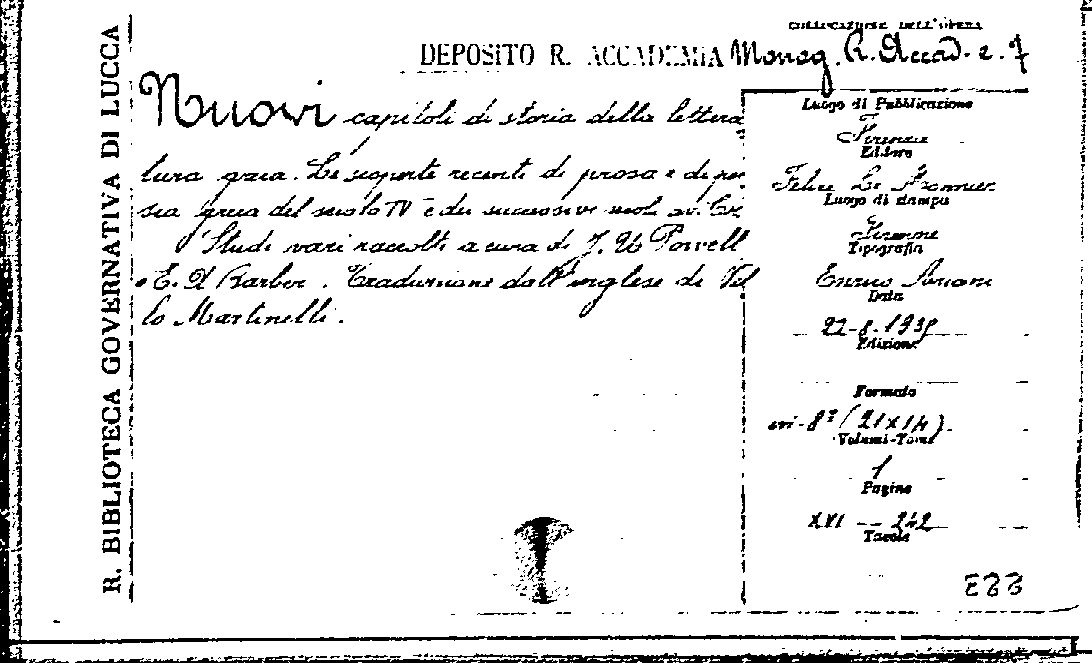 R. BIBLIOTECA GOVERNATIVA DI LUCCA
COLLOCAZIONE DELL'OPERA
DEPOSITO R. ACCADEMIA Monog. R. Accad. e. 7
Nuovi capitoli di storia della lettera
tura greca. Le scoperte recenti di prosa e di poe
sia greca del secolo IV e dei successivi secoli av. Cr.
Studi vari raccolti a cura di J. U. Powell
e E. A. Barber. Traduzione dall'inglese di Nel
lo Martinelli.
Luogo di Pubblicazione
Firenze
Editore
Felice Le Monnier
Luogo di stampa
Firenze
Tipografia
Enrico Ariani
Data
Edizione
Formato
in-8° (21x14).
Volumi-Tomi
1
Pagine
XVI — 242
Tavole